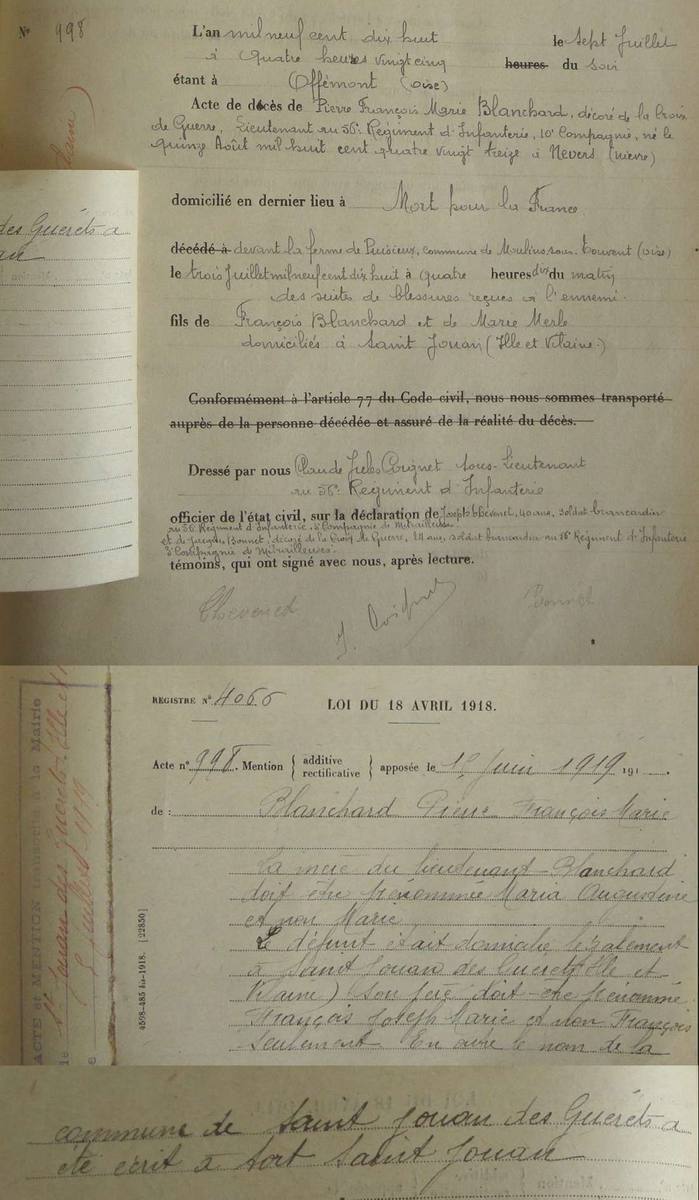 N° 998
L'an mil neuf cent dix huit le sept Juillet
à quatre heures vingt cinq heures du soir
étant à Offémont (Oise)
Acte de décès de Pierre François Marie Blanchard, décoré de la Croix
de Guerre, Lieutenant au 56e Régiment d'Infanterie, 10e Compagnie, né le
quinze Août mil huit cent quatre vingt treize à Nevers (Nièvre)
des Guérets a
domicilié en dernier lieu à Mort pour la France
décédé à devant la ferme de Puisieux, commune de Moulins-sous-Touvent (Oise)
le trois Juillet mil neuf cent dix huit à quatre heures dix du matin
des suites de blessures reçues à l'ennemi.
fils de François Blanchard et de Marie Merle
domiciliés à Saint Jouan (Ille et Vilaine)
Conformément à l'article 77 du Code civil, nous nous sommes transporté
auprès de la personne décédée et assuré de la réalité du décès.
Dressé par nous Claude Jules Coignet Sous-Lieutenant
au 56e Régiment d'Infanterie
officier de l'état civil, sur la déclaration de Joseph Chevenet, 40 ans, soldat brancardier
au 56e Régiment d'Infanterie, 3e Compagnie de Mitrailleuses.
et de Bonnet, décoré de la Croix de Guerre, ans, soldat brancardier au 56e Régiment d'Infanterie
3e Compagnie de Mitrailleuses.
témoins, qui ont signé avec nous, après lecture.
Chevenet J. Coignet Bonnet
REGISTRE N° 4066
LOI DU 18 AVRIL 1918.
Acte n° 998. Mention { additive rectificative } apposée le Juin 1919 191
de : Blanchard Pierre François Marie
La mère du lieutenant Blanchard
doit être prénommée Maria Augustine
et non Marie
Le défunt était domicilié légalement
à Saint Jouan des Guérets (Ille et
Vilaine) Son père doit être prénommé
François Joseph Marie et non François
seulement. En outre le nom de la
commune de Saint Jouan des Guérets a
été écrit à tort Saint Jouan
ACTE et MENTION transcrits à la Mairie
de St Jouan des Guérets Ille et
1919
4598-485 bis-1918. [22850]